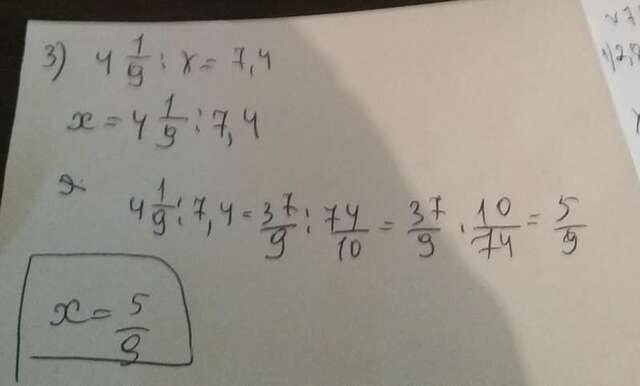 3) 4 1/9 : x = 7,4
x = 4 1/9 : 7,4
4 1/9 : 7,4 = 37/9 : 74/10 = 37/9 · 10/74 = 5/9
x = 5/9